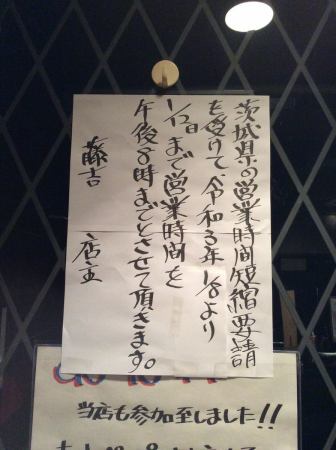 茨城県の営業時間短縮要請
を受けて令和3年1/8より
1/12日まで営業時間を
午後8時までとさせて頂きます。
藤吉 店主
当店も参加至しました!!